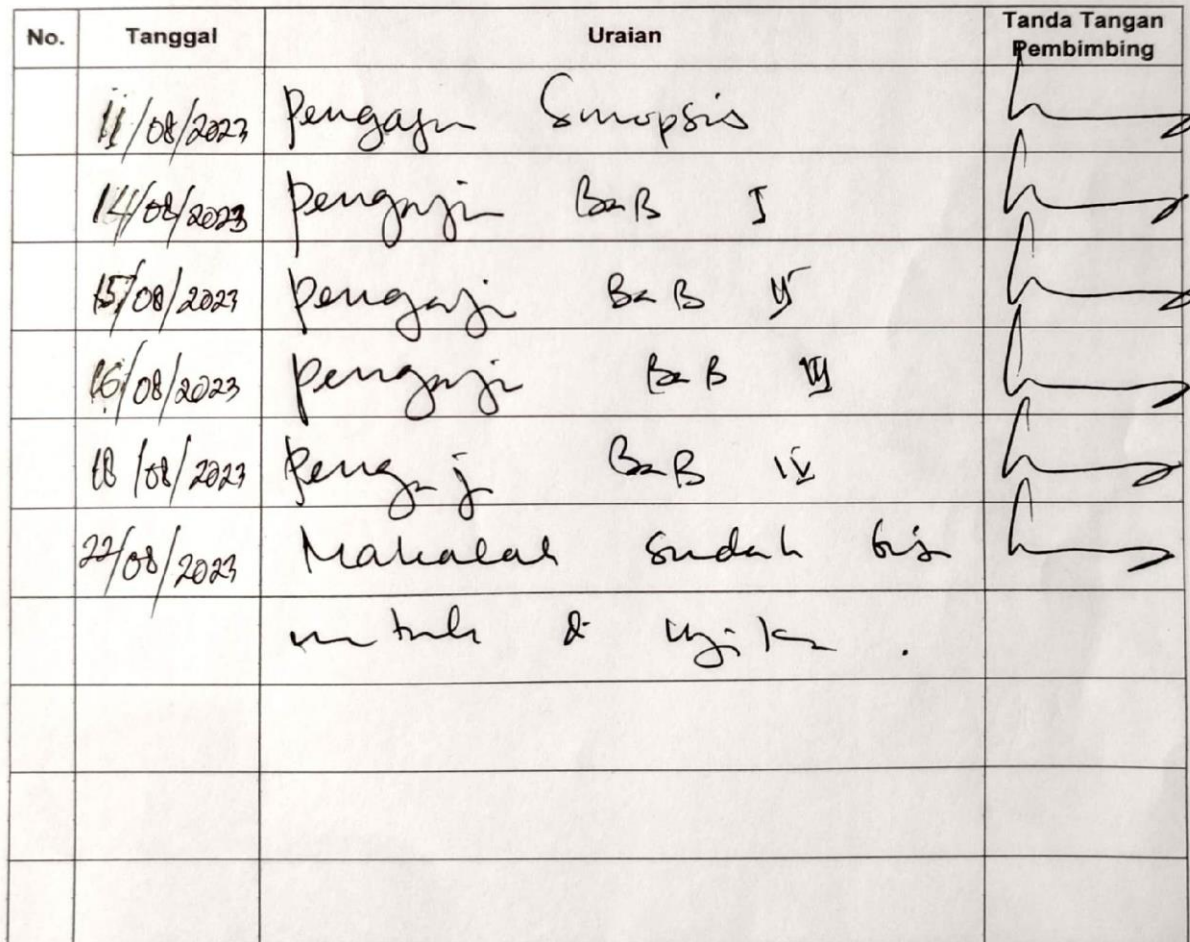 No. Tanggal Uraian Tanda Tangan Pembimbing
11/08/2023 Pengajun Sinopsis
14/08/2023 Pengajin BaB I
15/08/2023 Pengaji BaB II
16/08/2023 Pengaji BaB III
18/08/2023 Pengaj BaB IV
22/08/2023 Makalah sudah bis
untuk di Ujikan .